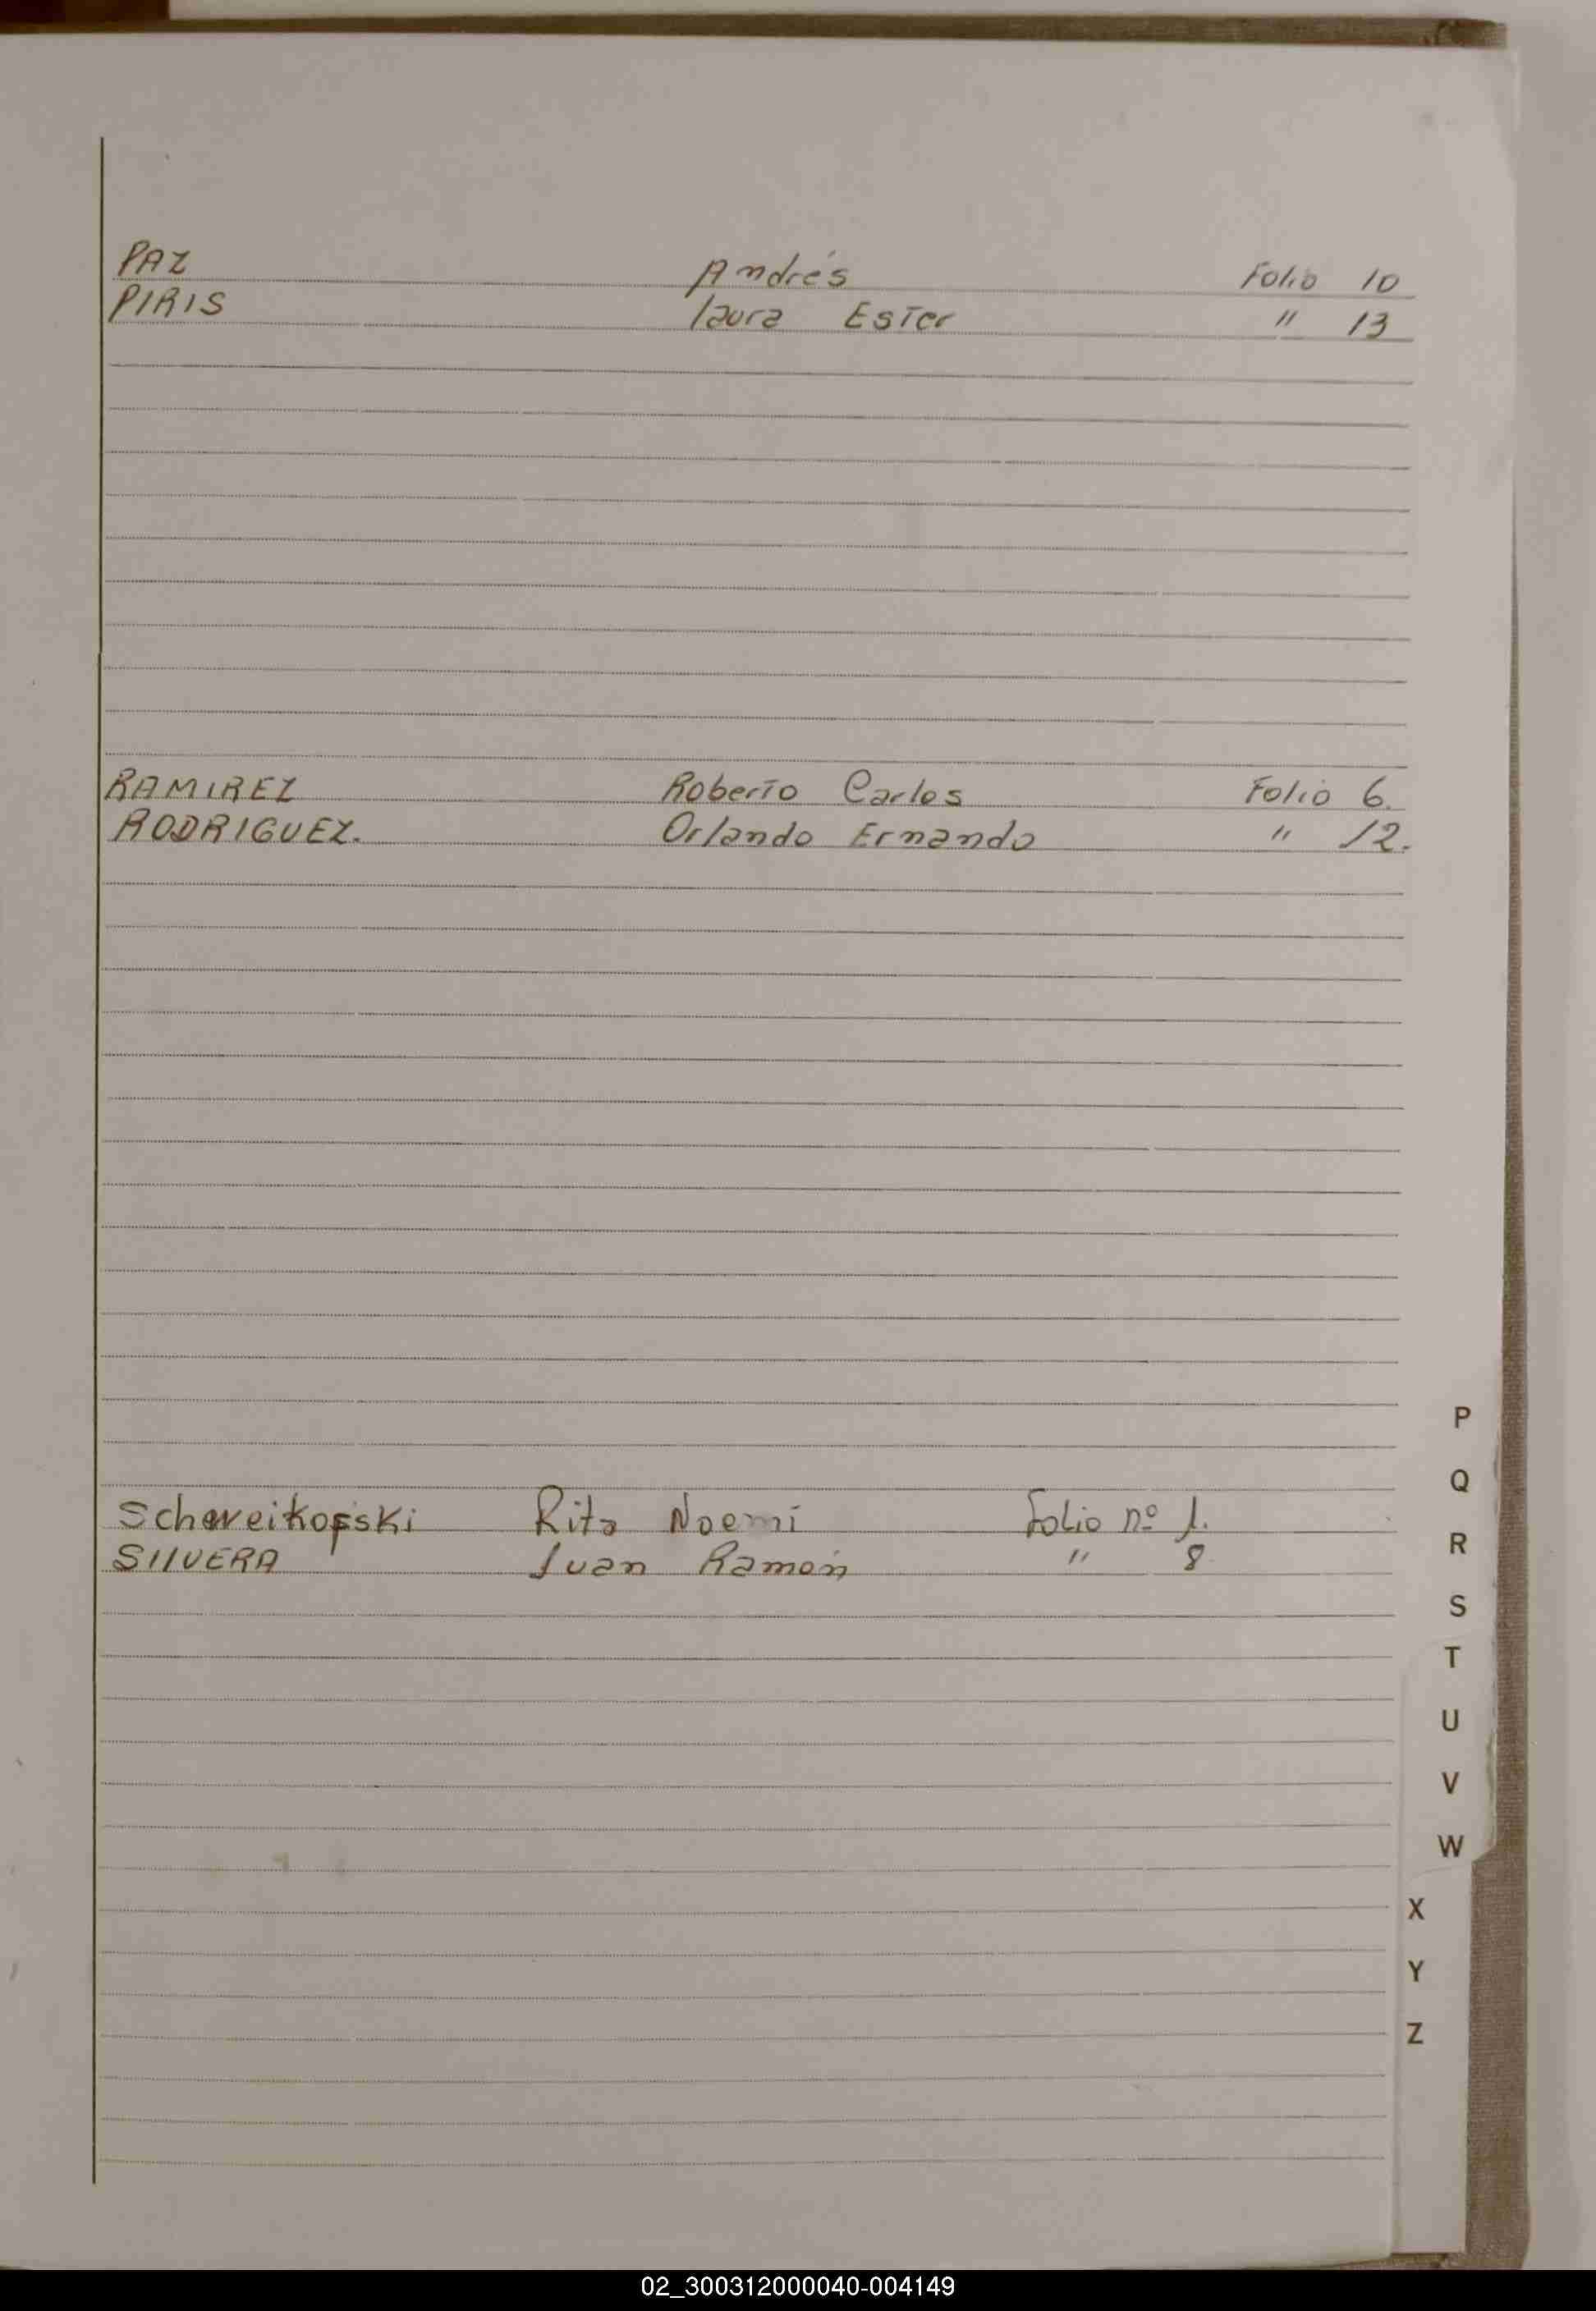 PAZ Andrés Folio 10
PIRIS laura Ester " 13
RAMIREZ Roberto Carlos Folio 6.
RODRIGUEZ. Orlando Ernando " 12.
Rita Noemi Folio nº 1.
SIlVERA Juan Ramón " 8
P
Q
R
S
T
U
V
W
X
Y
Z
02_300312000040-004149